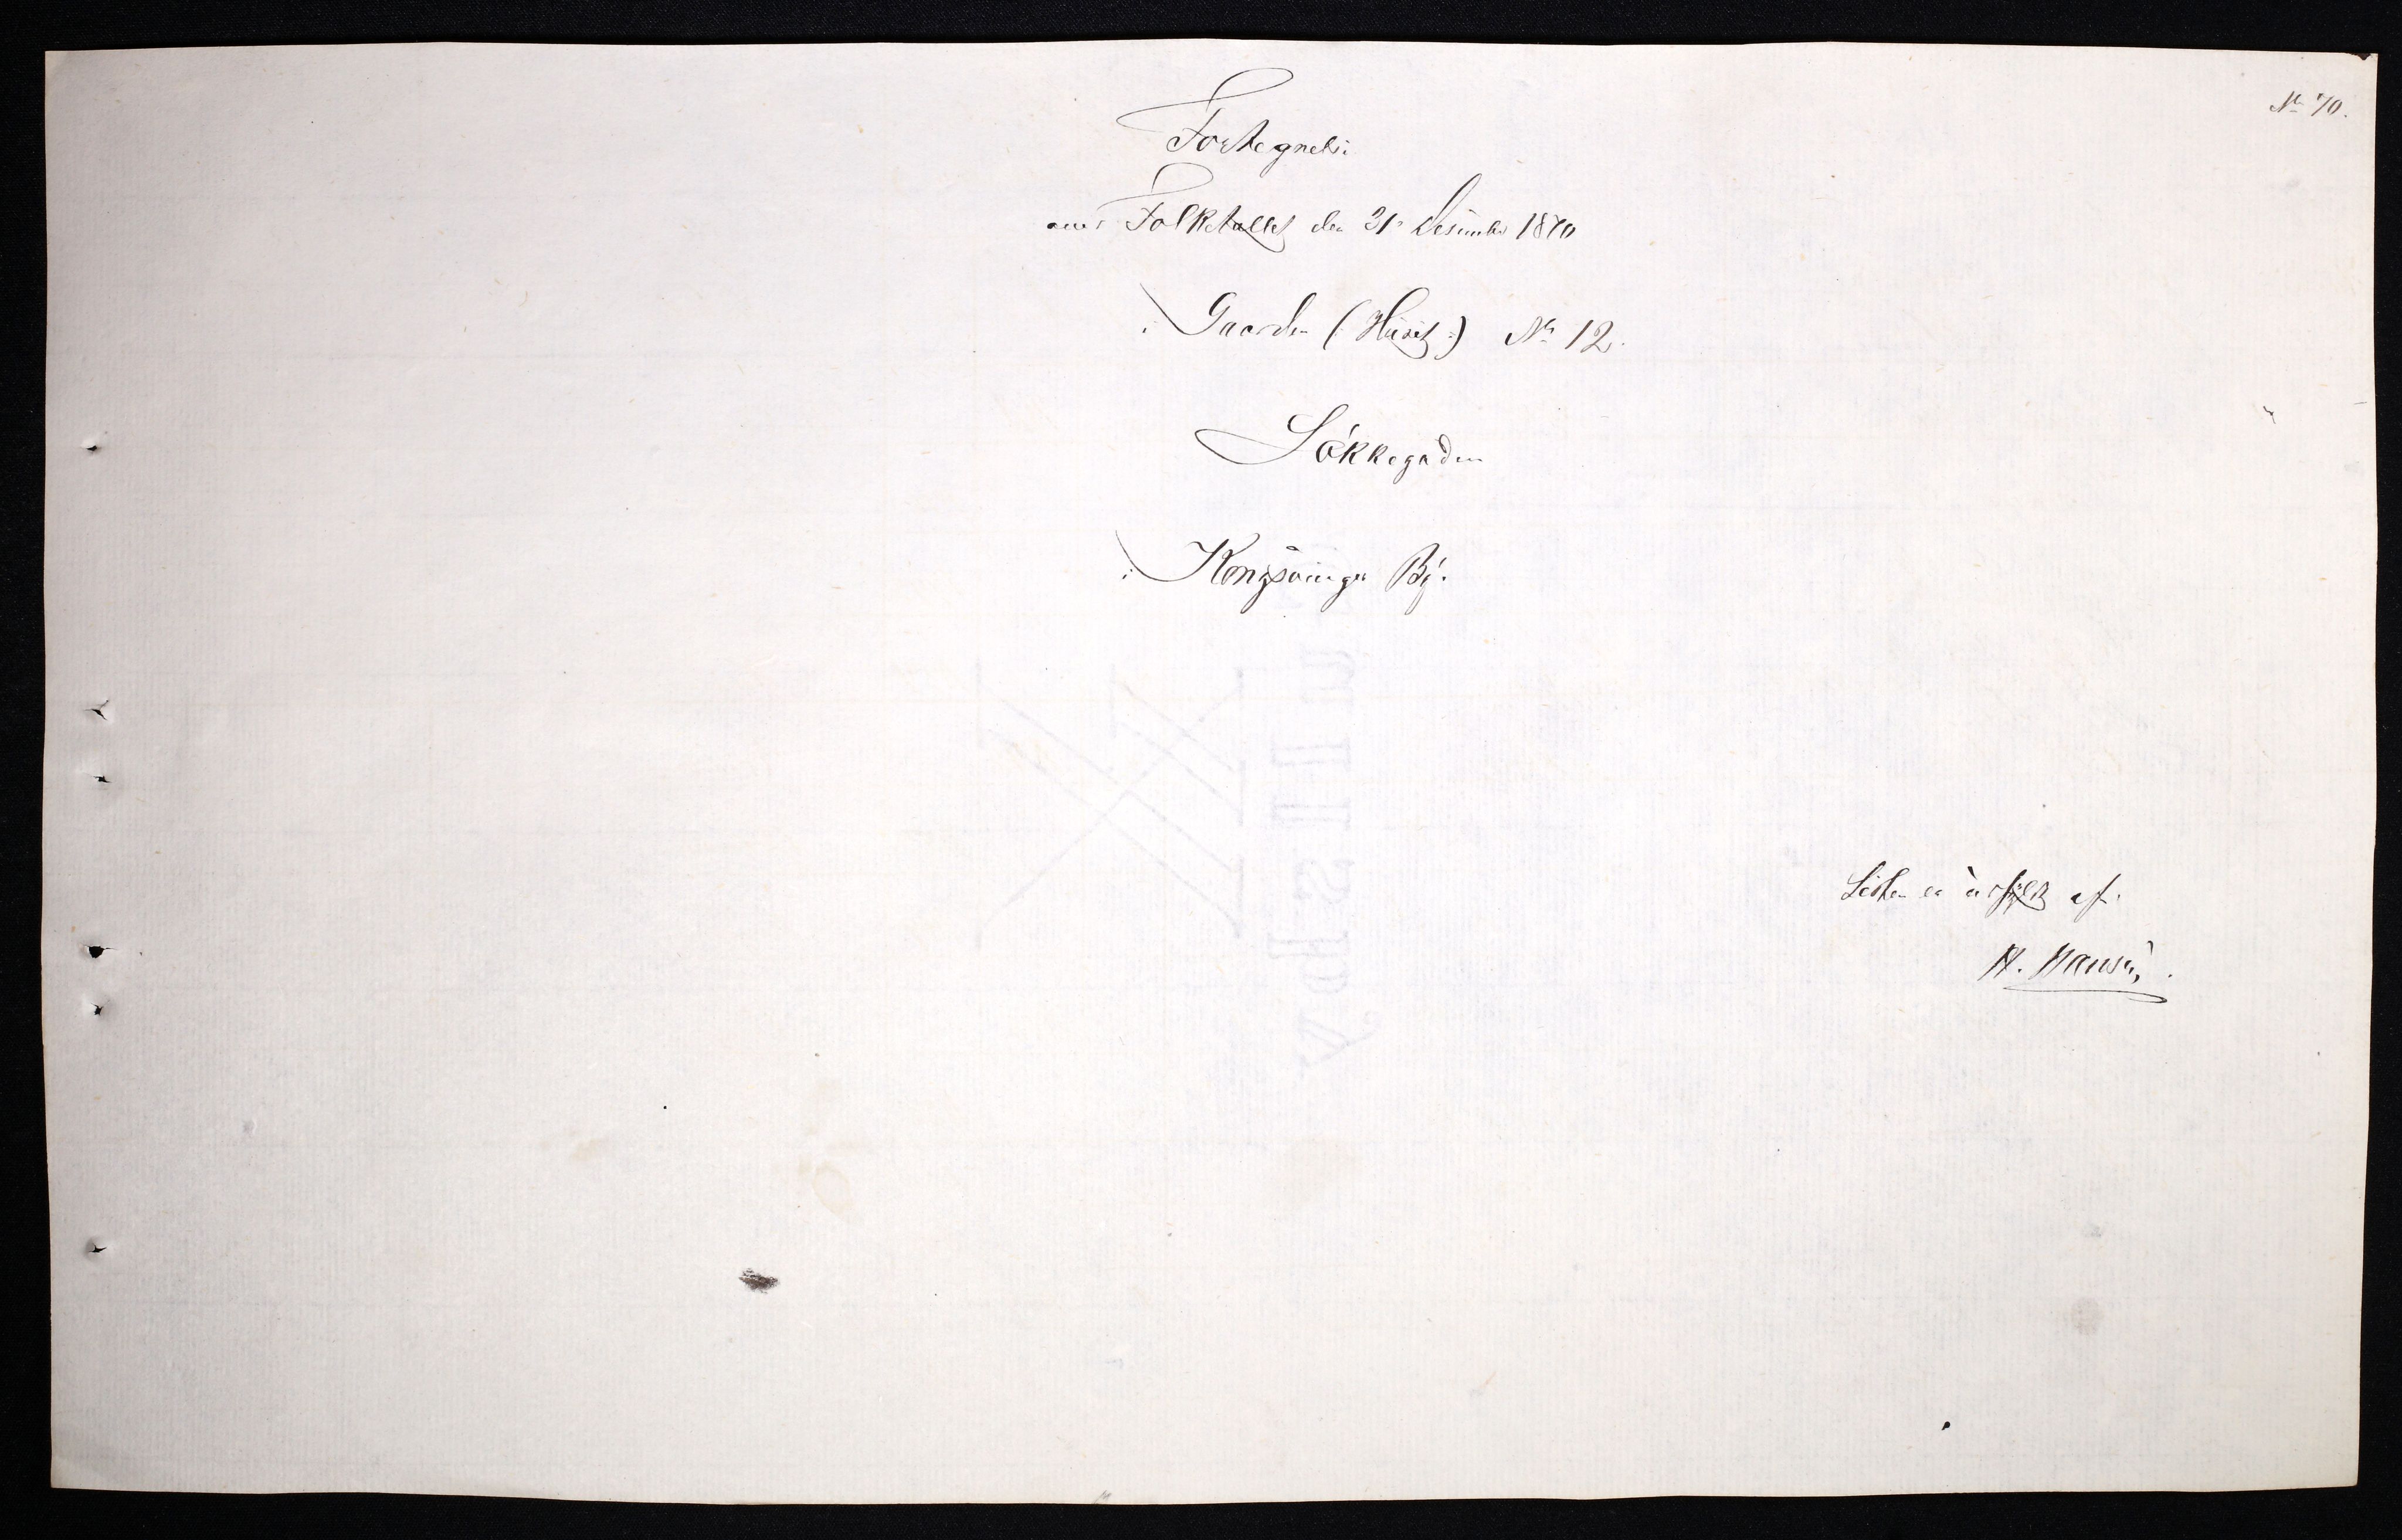 No 70.
Fortegnelse
over Folketallet den 31 Desember 1870
i Gaarden (Huset:) No 12.
Løkkegaden
i Kongsvinger By.
Listen er udfyldt af.
H. Hansen.